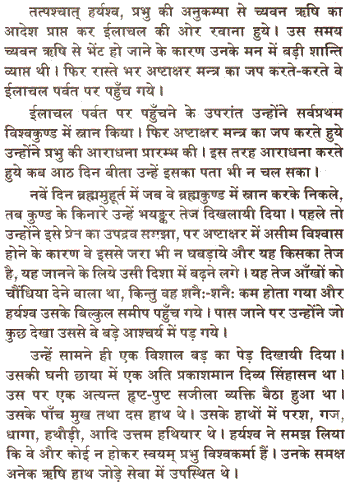 तत्पश्चात् हर्यश्व, प्रभु की अनुकम्पा से च्यवन ऋषि का
आदेश प्राप्त कर ईलाचल की ओर रवाना हुये। उस समय
च्यवन ऋषि से भेंट हो जाने के कारण उनके मन में बड़ी शान्ति
व्याप्त थी। फिर रास्ते भर अष्टाक्षर मन्त्र का जप करते-करते वे
ईलाचल पर्वत पर पहुँच गये।
ईलाचल पर्वत पर पहुँचने के उपरांत उन्होंने सर्वप्रथम
विश्वकुण्ड में स्नान किया। फिर अष्टाक्षर मन्त्र का जप करते हुये
उन्होंने प्रभु की आराधना प्रारम्भ की। इस तरह आराधना करते
हुये कब आठ दिन बीता उन्हें इसका पता भी न चल सका।
नवें दिन ब्रह्ममुहूर्त में जब वे ब्रह्मकुण्ड में स्नान करके निकले,
तब कुण्ड के किनारे उन्हें भयङ्कर तेज दिखलायी दिया। पहले तो
उन्होंने इसे प्रेत का उपद्रव समझा, पर अष्टाक्षर में असीम विश्वास
होने के कारण वे इससे जरा भी न घबड़ाये और यह किसका तेज
है, यह जानने के लिये उसी दिशा में बढ़ने लगे। यह तेज आँखों को
चौंधिया देने वाला था, किन्तु वह शनैः-शनैः कम होता गया और
हर्यश्व उसके बिल्कुल समीप पहुँच गये। पास जाने पर उन्होंने जो
कुछ देखा उससे वे बड़े आश्चर्य में पड़ गये।
उन्हें सामने ही एक विशाल बड़ का पेड़ दिखायी दिया।
उसकी घनी छाया में एक अति प्रकाशमान दिव्य सिंहासन था।
उस पर एक अत्यन्त हृष्ट-पुष्ट सजीला व्यक्ति बैठा हुआ था।
उसके पाँच मुख तथा दस हाथ थे। उसके हाथों में परश, गज,
धागा, हथौड़ी, आदि उत्तम हथियार थे। हर्यश्व ने समझ लिया
कि वे और कोई न होकर स्वयम् प्रभु विश्वकर्मा हैं। उनके समक्ष
अनेक ऋषि हाथ जोड़े सेवा में उपस्थित थे।